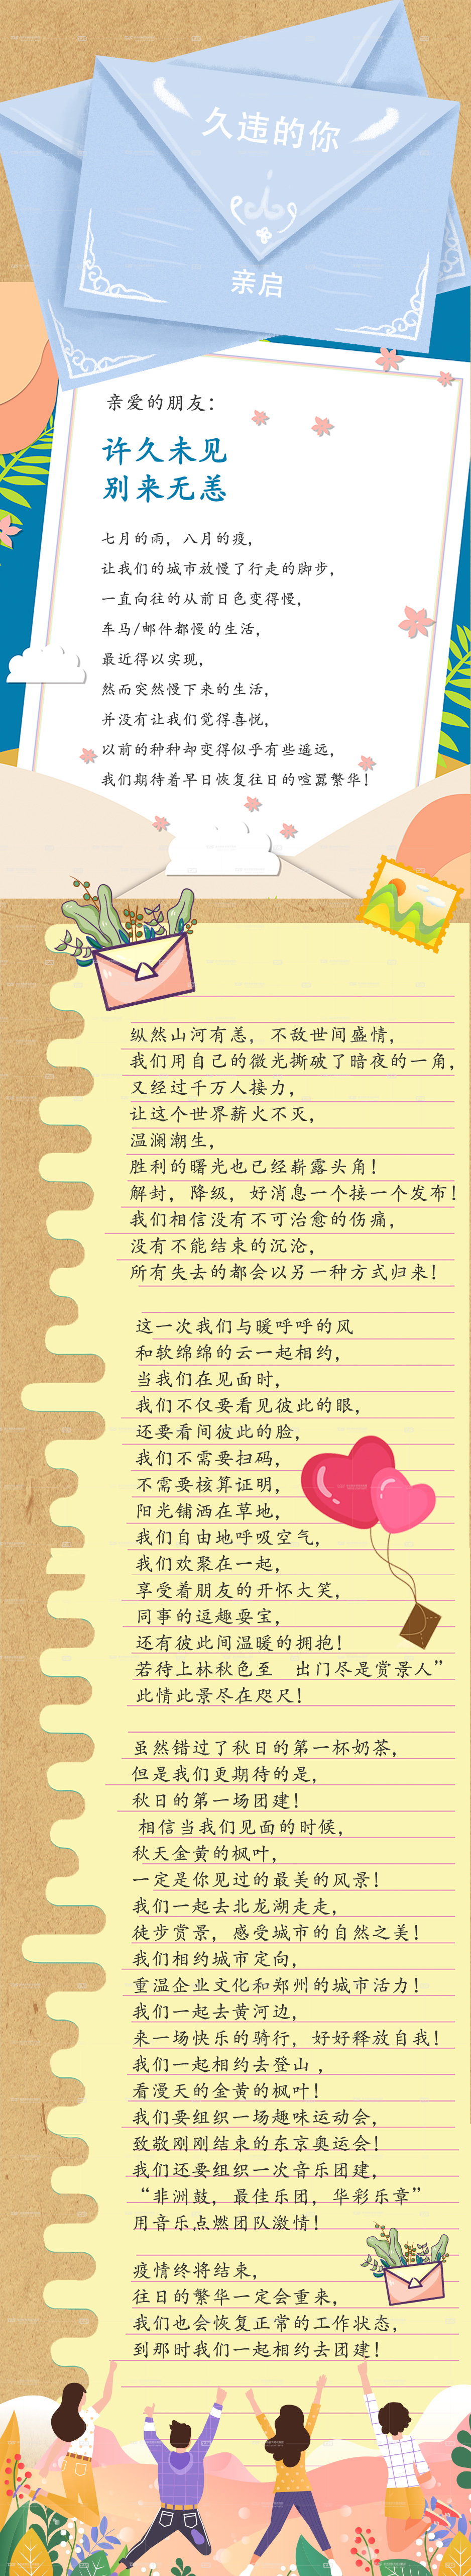 久违的你
亲启
亲爱的朋友：
许久未见
别来无恙
七月的雨，八月的疫，
让我们的城市放慢了行走的脚步，
一直向往的从前日色变得慢，
车马/邮件都慢的生活，
最近得以实现，
然而突然慢下来的生活，
并没有让我们觉得喜悦，
以前的种种却变得似乎有些遥远，
我们期待着早日恢复往日的喧嚣繁华！
纵然山河有恙，不敌世间盛情，
我们用自己的微光撕破了暗夜的一角，
又经过千万人接力，
让这个世界薪火不灭，
温澜潮生，
胜利的曙光也已经崭露头角！
解封，降级，好消息一个接一个发布！
我们相信没有不可治愈的伤痛，
没有不能结束的沉沦，
所有失去的都会以另一种方式归来！
这一次我们与暖呼呼的风
和软绵绵的云一起相约，
当我们在见面时，
我们不仅要看见彼此的眼，
还要看间彼此的脸，
我们不需要扫码，
不需要核算证明，
阳光铺洒在草地，
我们自由地呼吸空气，
我们欢聚在一起，
享受着朋友的开怀大笑，
同事的逗趣耍宝，
还有彼此间温暖的拥抱！
若待上林秋色至 出门尽是赏景人”
此情此景尽在咫尺！
虽然错过了秋日的第一杯奶茶，
但是我们更期待的是，
秋日的第一场团建！
相信当我们见面的时候，
秋天金黄的枫叶，
一定是你见过的最美的风景！
我们一起去北龙湖走走，
徒步赏景，感受城市的自然之美！
我们相约城市定向，
重温企业文化和郑州的城市活力！
我们一起去黄河边，
来一场快乐的骑行，好好释放自我！
我们一起相约去登山，
看漫天的金黄的枫叶！
我们要组织一场趣味运动会，
致敬刚刚结束的东京奥运会！
我们还要组织一次音乐团建，
“非洲鼓，最佳乐团，华彩乐章”
用音乐点燃团队激情！
疫情终将结束，
往日的繁华一定会重来，
我们也会恢复正常的工作状态，
到那时我们一起相约去团建！